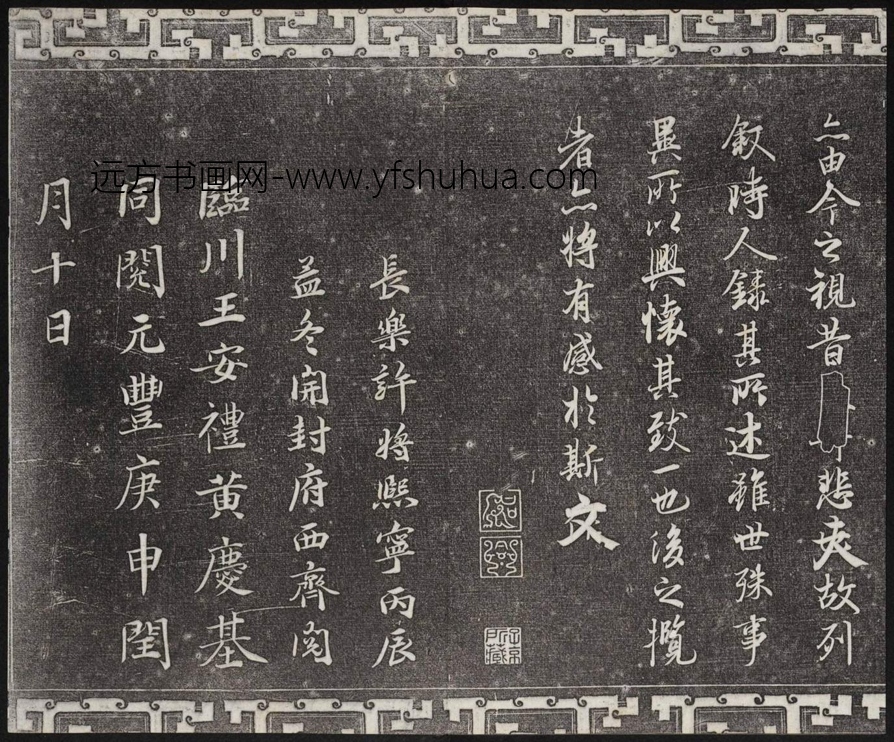 亦由今之視昔悲夫故列
敘時人錄其所述雖世殊事
異所以興懷其致一也後之攬
者亦將有感於斯文
長樂許將熙寧丙辰
孟冬開封府西齋閱
臨川王安禮黃慶基
同閱元豐庚申閏
月十日
远方书画网-www.yfshuhua.com